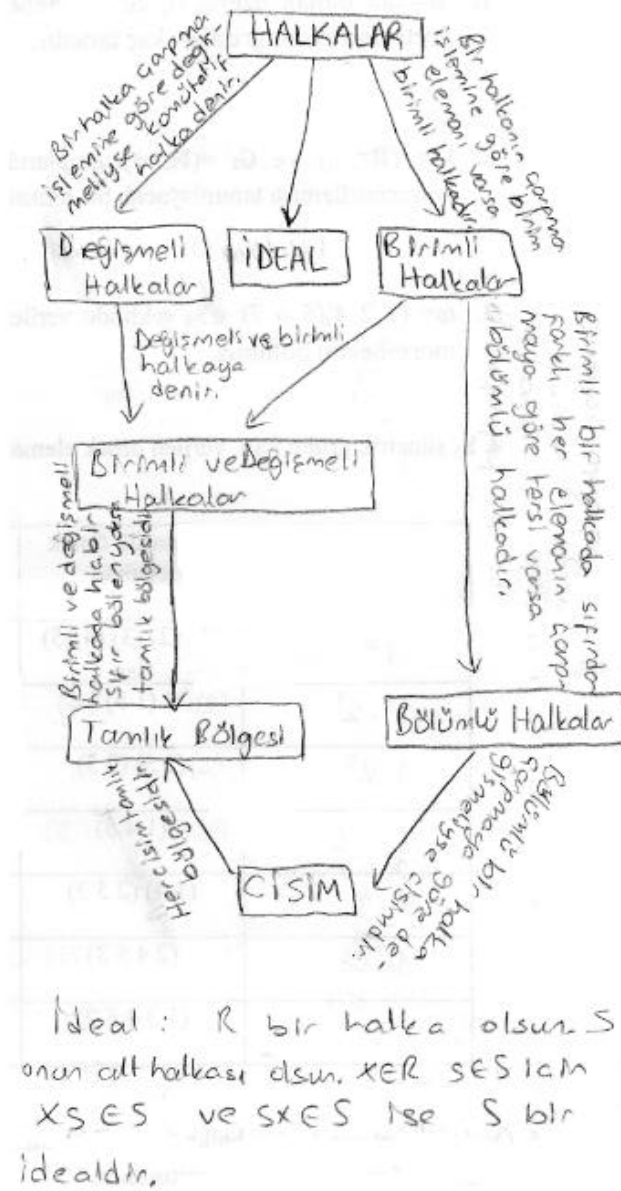 HALKALAR
Bir halka çarpma
işlemine göre değiş-
meliyse komütatif
halka denir.
Bir halkanın çarpma
işlemine göre birim
eleman varsa
birimli halkadır.
Değişmeli
Halkalar
İDEAL
Birimli
Halkalar
Değişmeli ve birimli
halkaya
denir.
Birimli bir halkada sıfırdan
farklı her elemanın çarp-
maya göre tersi varsa
bölümlü halkadır.
Birimli ve Değişmeli
Halkalar
Birimli ve değişmeli
halkada hiçbir
sıfır bölen yoksa
tamlık bölgesidir
Tamlık Bölgesi
Bölümlü Halkalar
Her cisim tamlık
bölgesidir
Bölümlü bir halka
çarpmaya göre de-
ğişmeliyse cisimdir.
CİSİM
İdeal : R bir halka olsun. S
onun alt halkası olsun. x∈R s∈S için
xs∈S ve sx∈S ise S bir
idealdir.